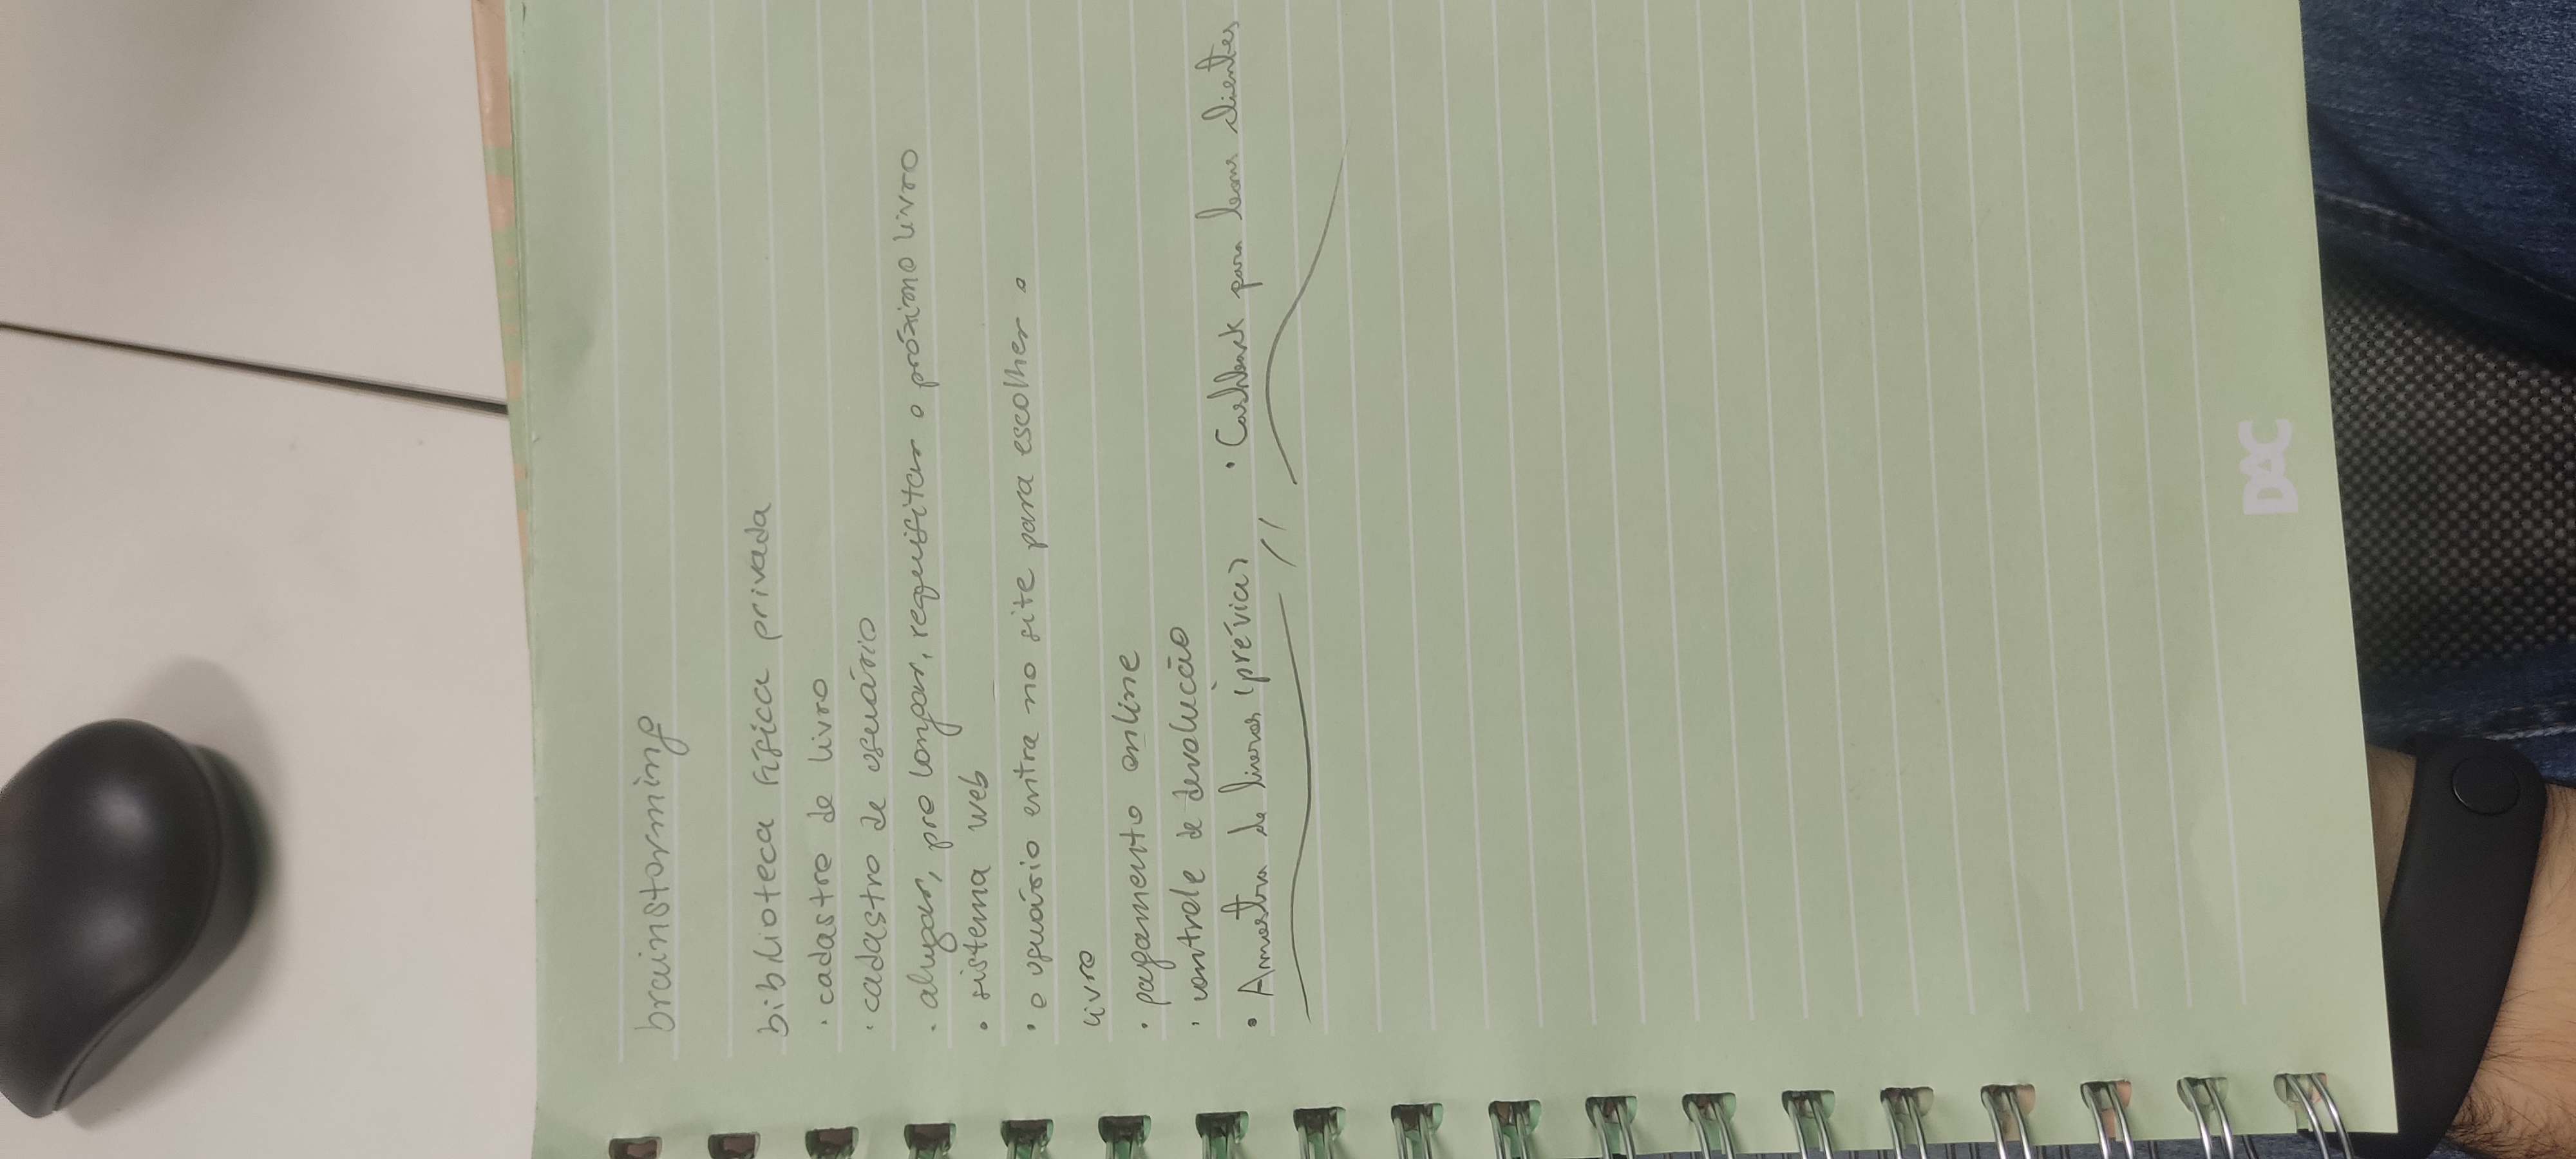 brainstorming
biblioteca física privada
· cadastro de livro
· cadastro de usuário
· alugar, prolongar, requisitar o próximo livro
· sistema web
· o usuário entra no site para escolher o
livro
· pagamento online
· controle de devolucão
· Amostra de livros (prévia) // · Cashback para bons clientes
DAC